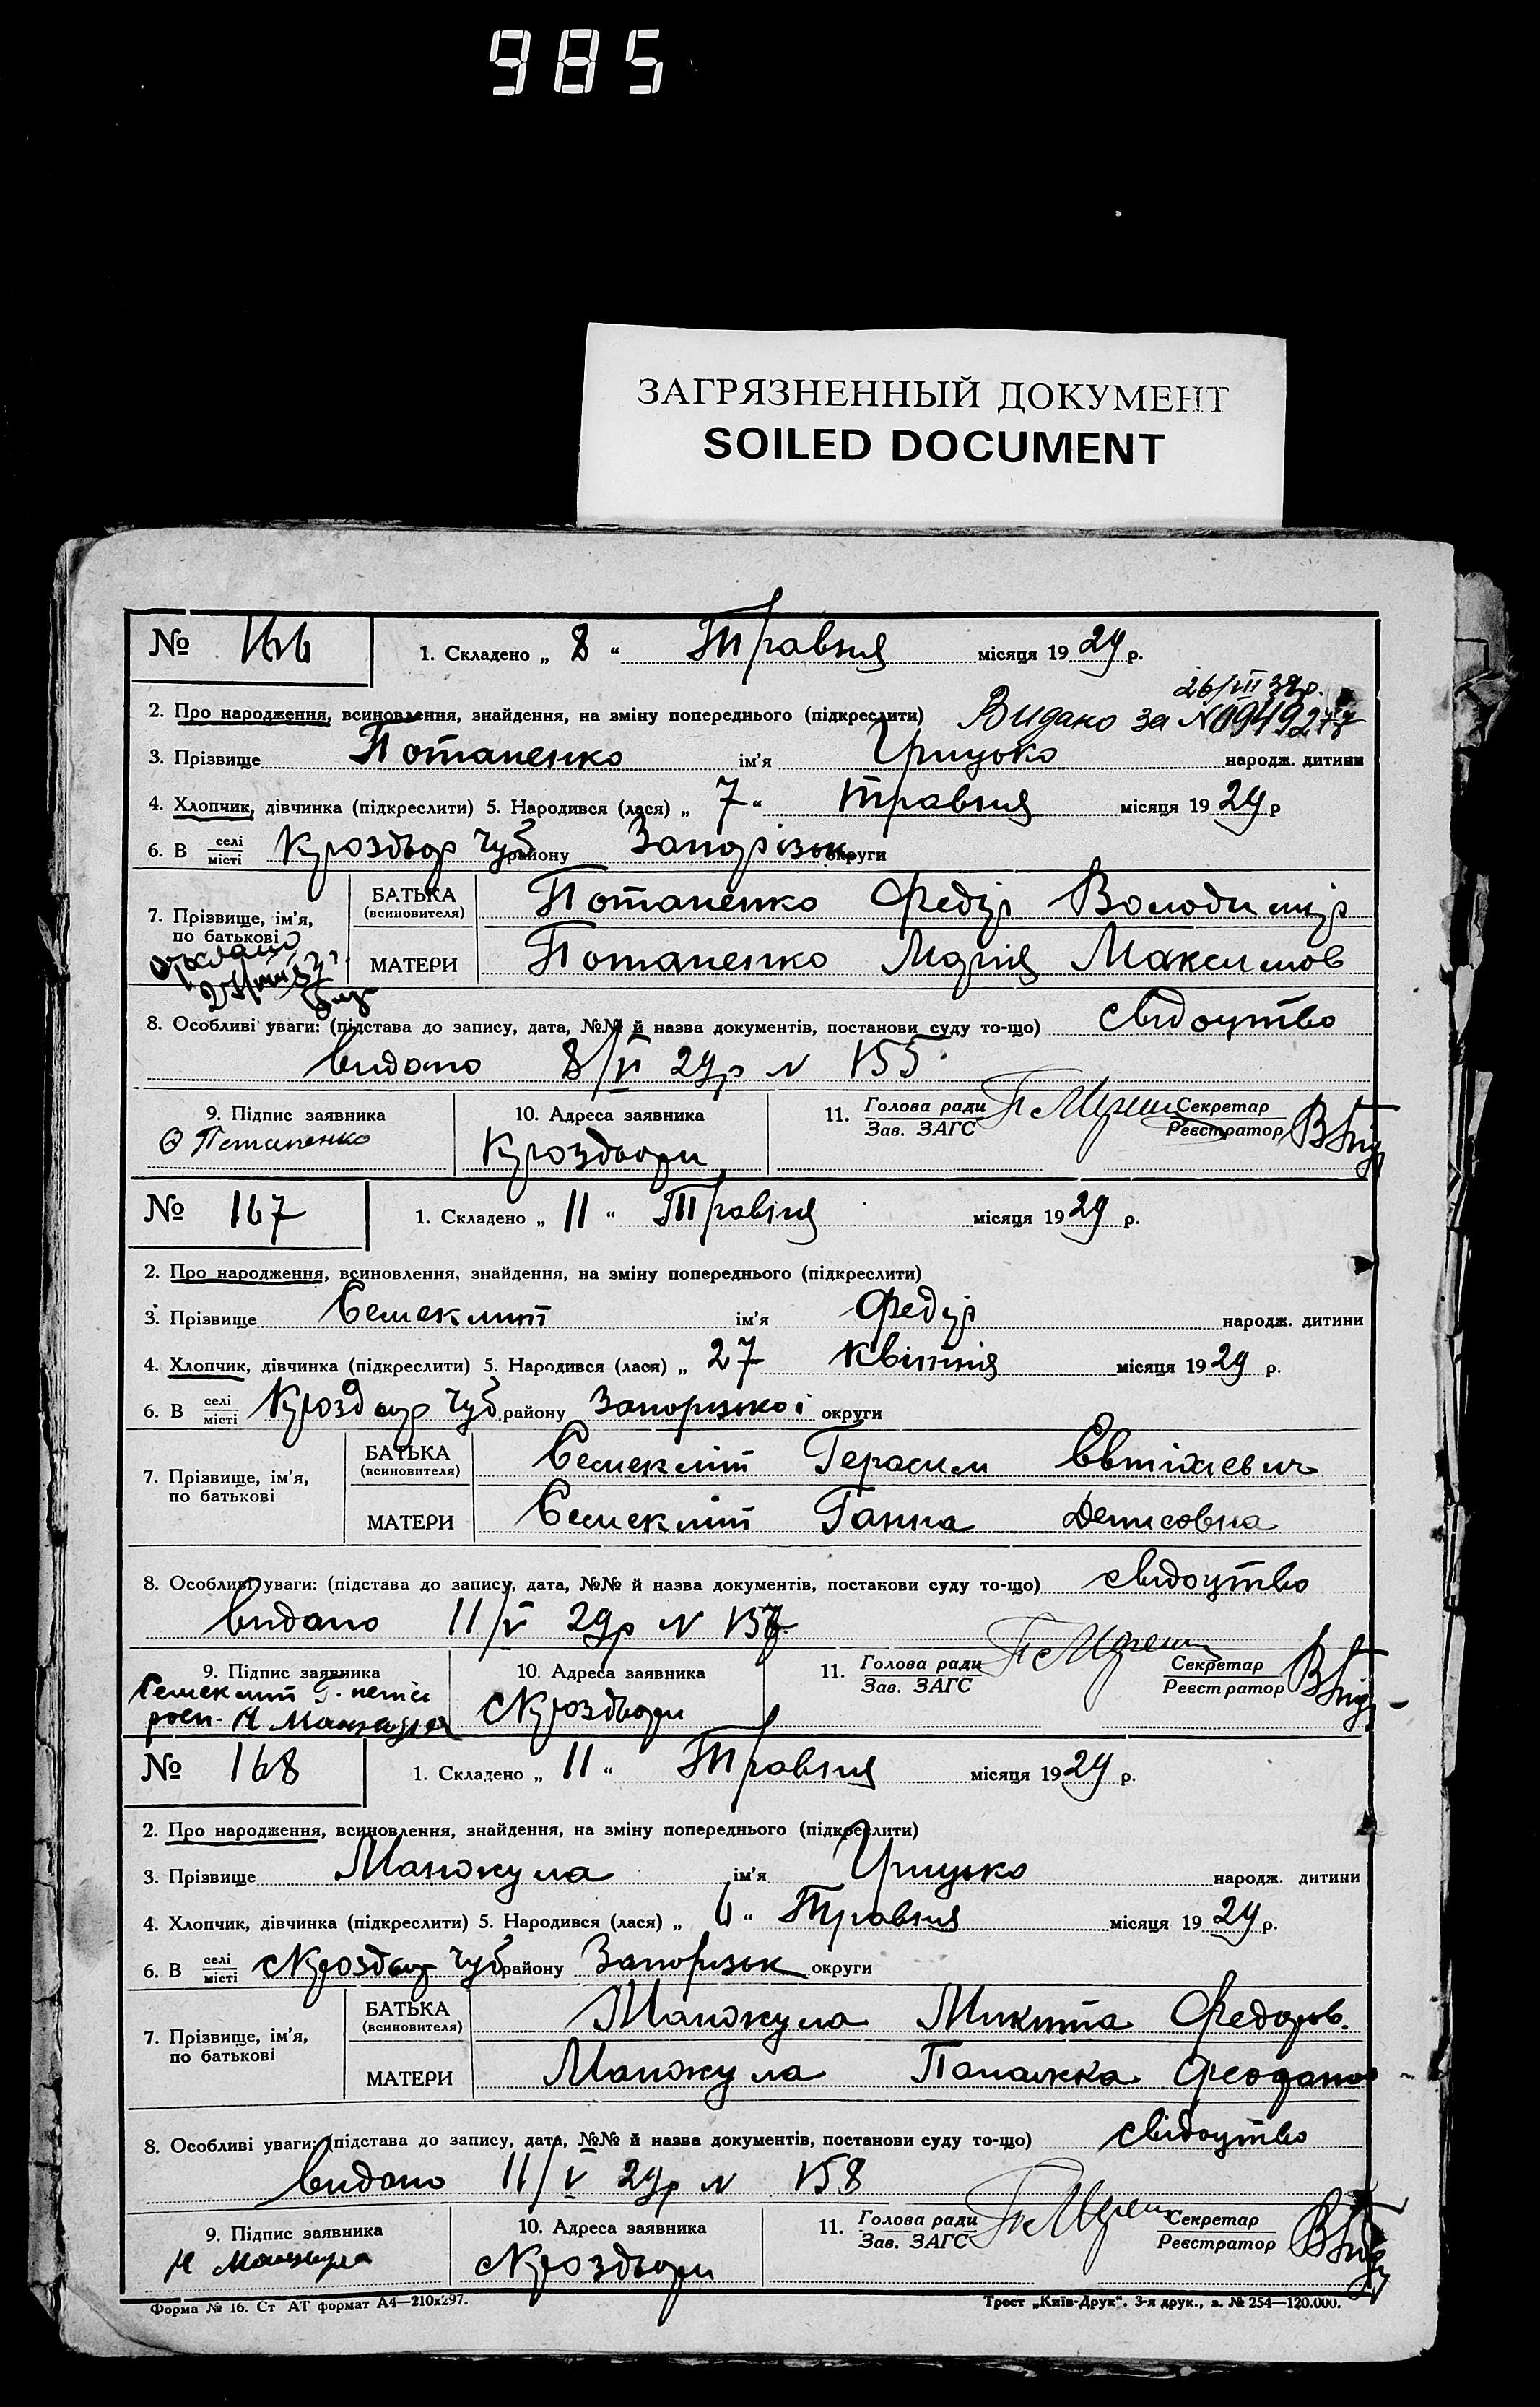 985
ЗАГРЯЗНЕННЫЙ ДОКУМЕНТ
SOILED DOCUMENT
№ 166 1. Складено „ 8 “ Травня місяця 1929 р.
26/III 38р.
2. Про народження, всиновлення, знайдення, на зміну попереднього (підкреслити) Видано за №
3. Прізвище Потапенко ім'я Грицько народж. дитини
4. Хлопчик, дівчинка (підкреслити) 5. Народився (лася) „ 7 “ травня місяця 1929 р
6. В селі/місті Чуб району Запорізьк округи
7. Прізвище, ім'я, по батькові
БАТЬКА (всиновителя) Потапенко Федір Володимир
МАТЕРИ Потапенко Марія Максимов
8. Особливі уваги: (підстава до запису, дата, №№ й назва документів, постанови суду то-що) свідоцтво
видано 8/VI 29р N 155
9. Підпис заявника 10. Адреса заявника 11. Голова ради/Зав. ЗАГС Секретар/Реєстратор
Потапенко
№ 167 1. Складено „ 11 “ Травня місяця 1929 р.
2. Про народження, всиновлення, знайдення, на зміну попереднього (підкреслити)
3. Прізвище Семекліт ім'я Федір народж. дитини
4. Хлопчик, дівчинка (підкреслити) 5. Народився (лася) „ 27 квітня місяця 1929 р.
6. В селі/місті Чуб. району Запорізької округи
7. Прізвище, ім'я, по батькові
БАТЬКА (всиновителя) Семекліт Герасим Євтіхієвич
МАТЕРИ Семекліт Ганна Денисовна
8. Особливі уваги: (підстава до запису, дата, №№ й назва документів, постанови суду то-що) свідоцтво
видано 11/V 29р N 157
9. Підпис заявника 10. Адреса заявника 11. Голова ради/Зав. ЗАГС Секретар/Реєстратор
№ 168 1. Складено „ 11 “ Травня місяця 1929 р.
2. Про народження, всиновлення, знайдення, на зміну попереднього (підкреслити)
3. Прізвище Манжула ім'я Грицько народж. дитини
4. Хлопчик, дівчинка (підкреслити) 5. Народився (лася) „ 6 “ Травня місяця 1929 р.
6. В селі/місті Чуб району Запорізьк округи
7. Прізвище, ім'я, по батькові
БАТЬКА (всиновителя) Манжула Микита Федоров.
МАТЕРИ Манжула Палажка
8. Особливі уваги: (підстава до запису, дата, №№ й назва документів, постанови суду то-що) свідоцтво
видано 11/V 29р N 158
9. Підпис заявника 10. Адреса заявника 11. Голова ради/Зав. ЗАГС Секретар/Реєстратор
Н Манжула
Форма № 16. Ст АТ формат А4—210x297. Трест „Київ-Друк“. 3-я друк., з. № 254—120.000.